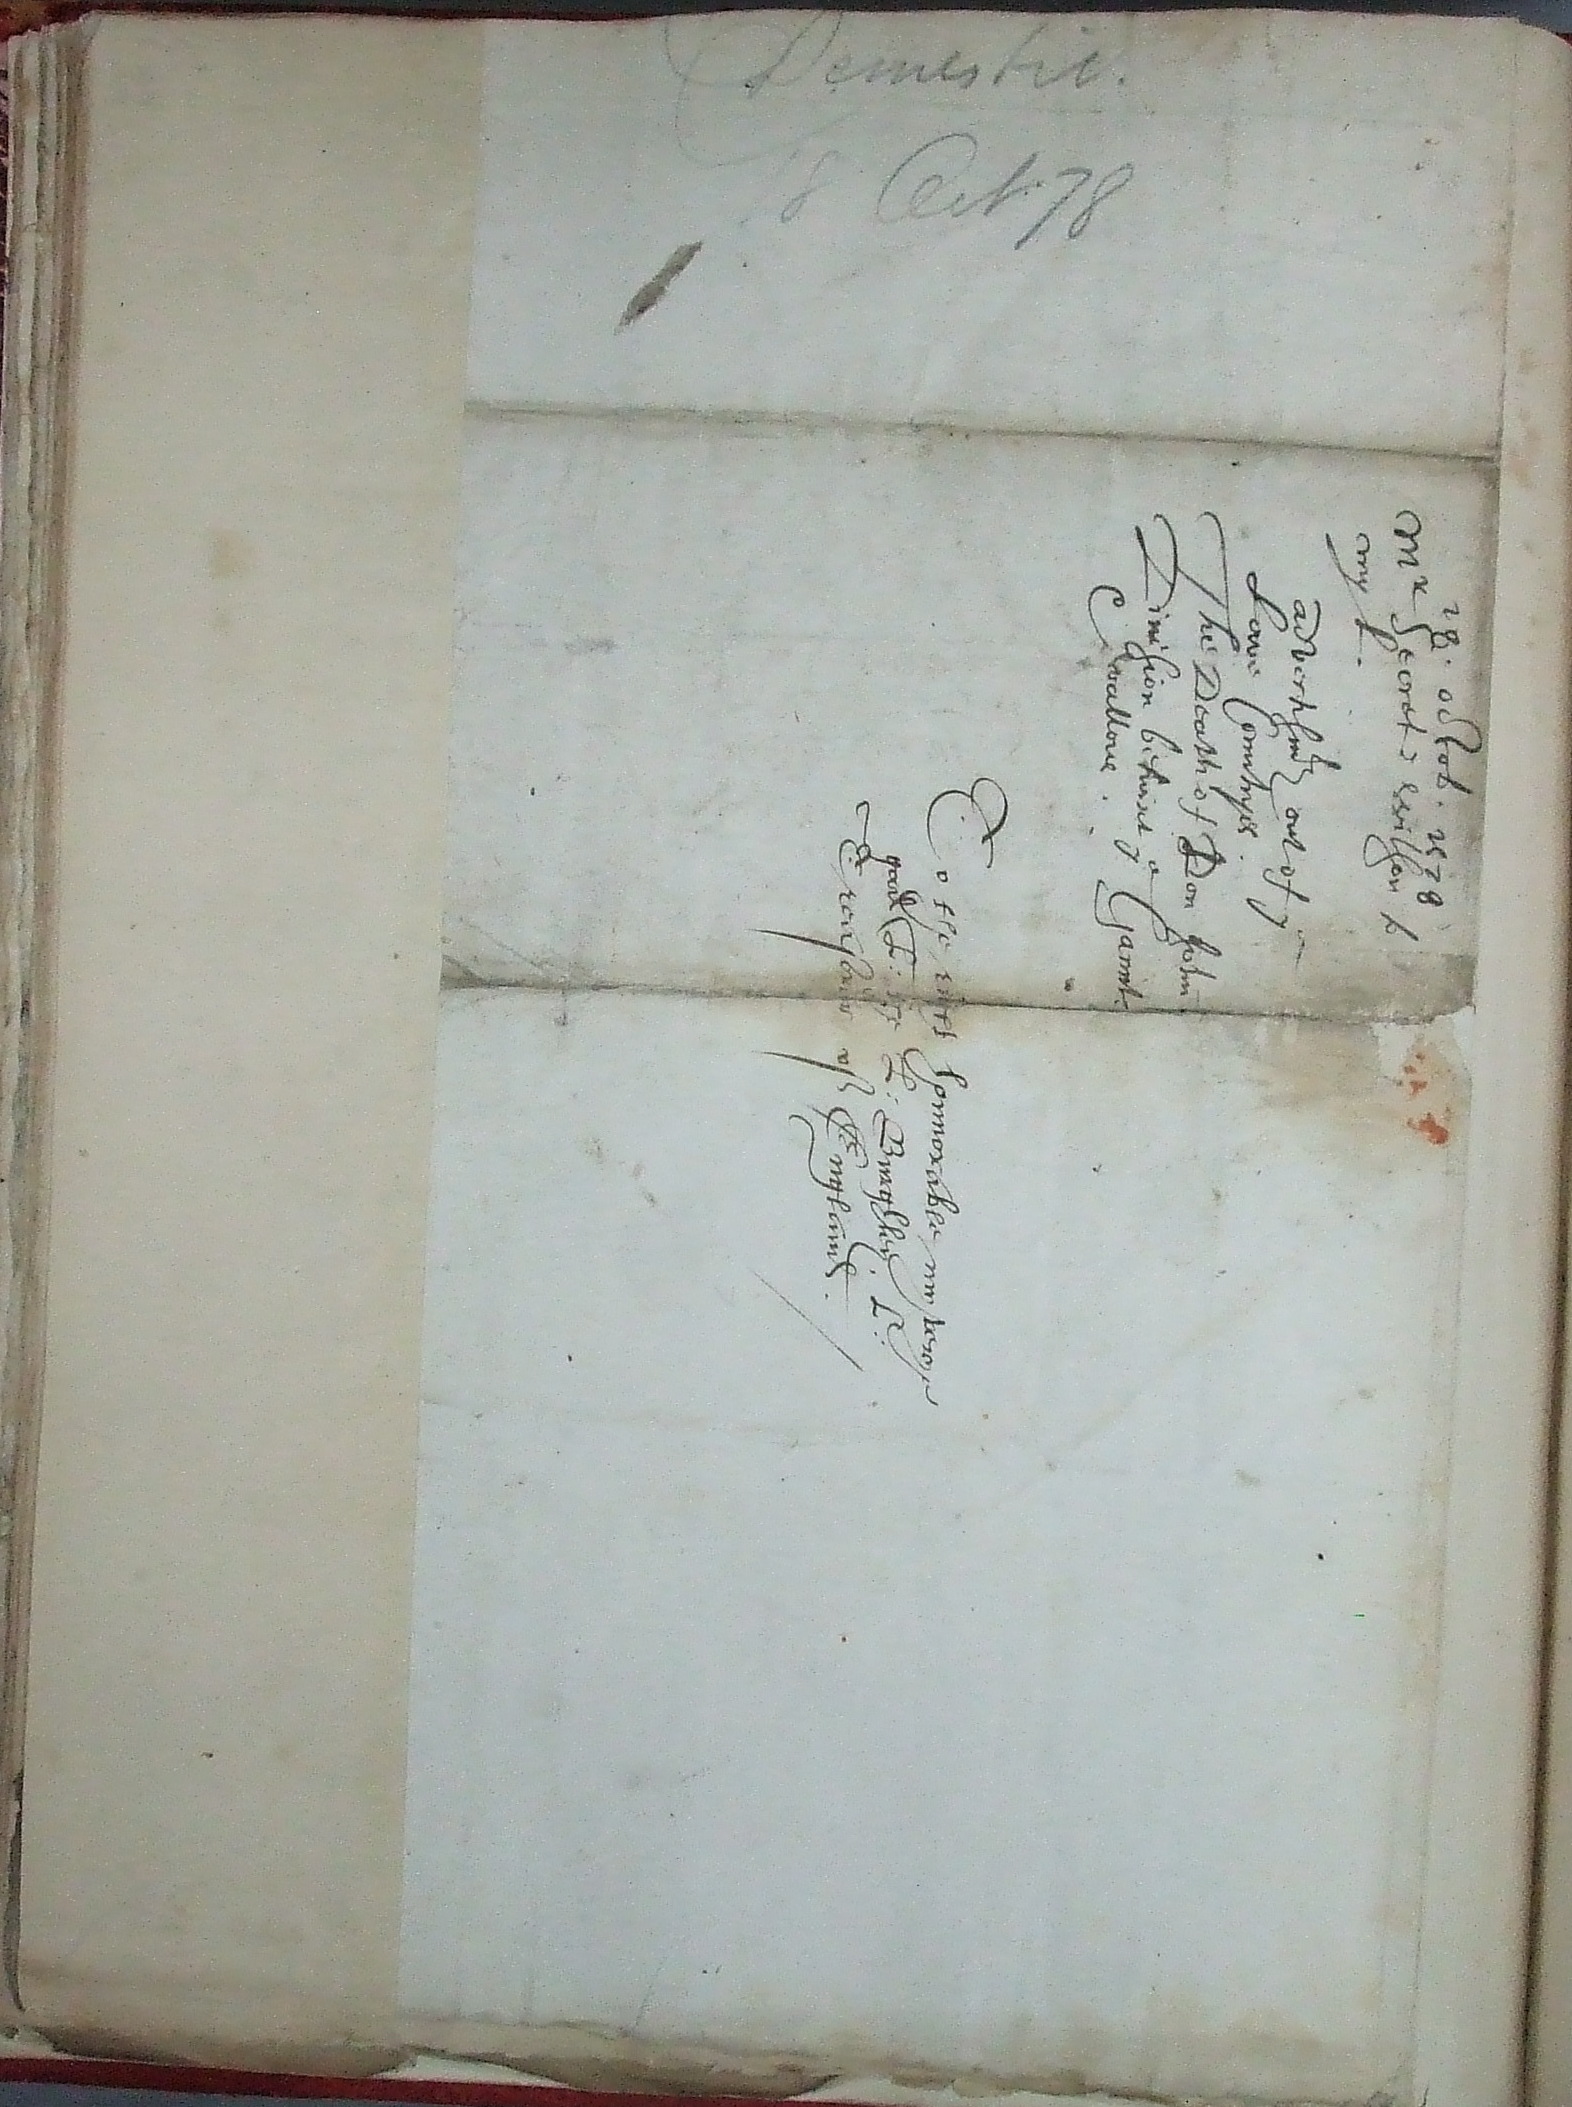 Domestic.
18 Oct. 78
18. octob. 1578
Mr Secret. willson to
my L.
advertismts out of ye
Lowe Countryes.
The Death of Don John
Division betwixt ye Gaunt.
& wallons.
To the right honnorable my verye
good L: the L: Burghley. L:
Treasurer off England.